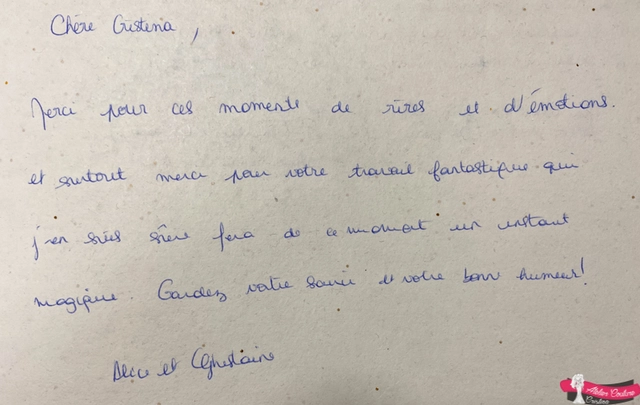 Chère Cristina,
Merci pour ces moments de rires et d'émotions.
et surtout merci pour votre travail fantastique qui
j'en suis sûre fera de ce moment un instant
magique. Gardez votre sourire et votre bonne humeur!
et Ghislaine
Atelier Couture
Cristina